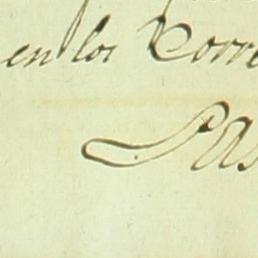 en los Corre
Pas